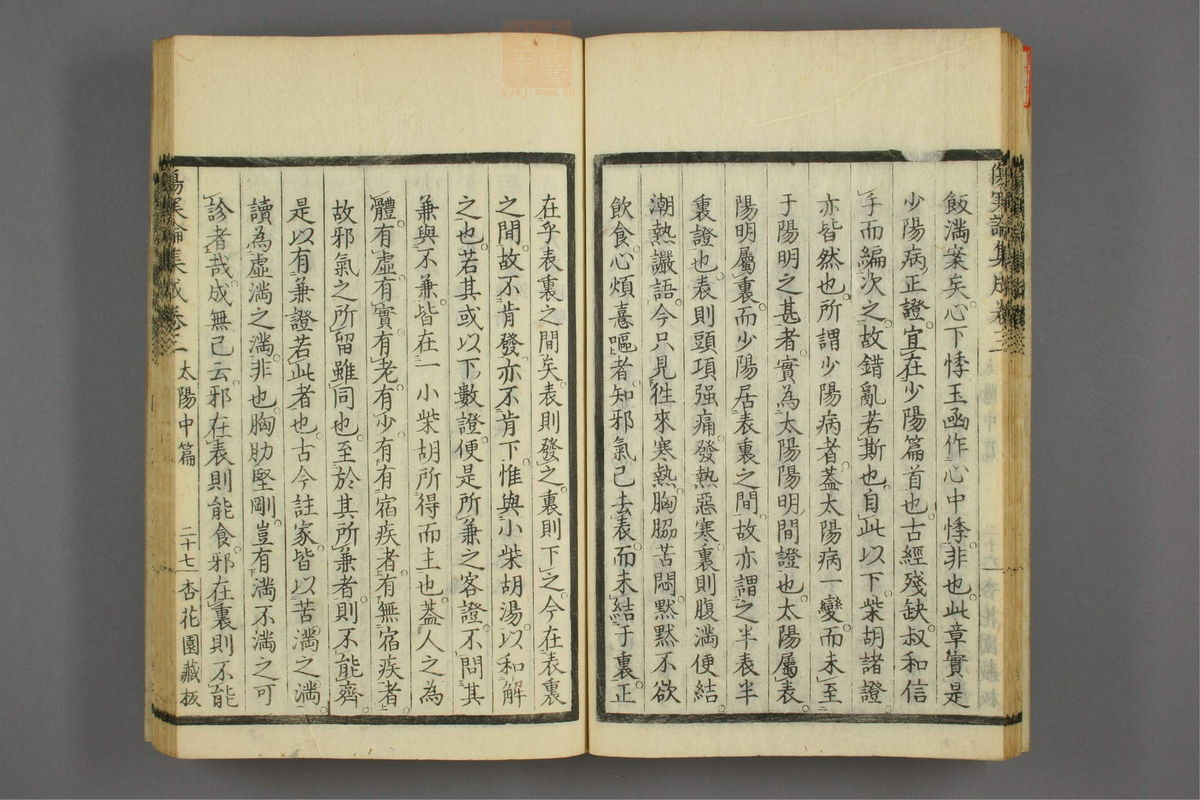 飯滿案矣心下悸玉函作心中悸非也此章實是
少陽病正證宜在少陽篇首也古經殘缺叔和信
手而編次之故錯亂若斯也自此以下柴胡諸證
亦皆然也所謂少陽病者蓋太陽病一變而未至
于陽明之甚者實為太陽陽明間證也太陽屬表
陽明屬裏而少陽居表裏之間故亦謂之半表半
裏證也表則頭項强痛發熱惡寒裏則腹滿便結
潮熱讝語今只見徃來寒熱胸脇苦悶默默不欲
飲食心煩喜嘔者知邪氣已去表而未結于裏正
在乎表裏之間矣表則發之裏則下之今在表裏
之間故不肯發亦不肯下惟與小柴胡湯以和解
之也若其或以下數證便是所兼之客證不問其
兼與不兼皆在一小柴胡所得而主也蓋人之為
體有虛有實有老有少有有宿疾者有無宿疾者
故邪氣之所留雖同也至於其所兼者則不能齊
是以有兼證若此者也古今註家皆以苦滿之滿
讀為虛滿之滿非也胸肋堅剛豈有滿不滿之可
診者哉成無己云邪在表則能食邪在裏則不能
傷寒論集成卷之二 太陽中篇 二十七 杏花園藏板